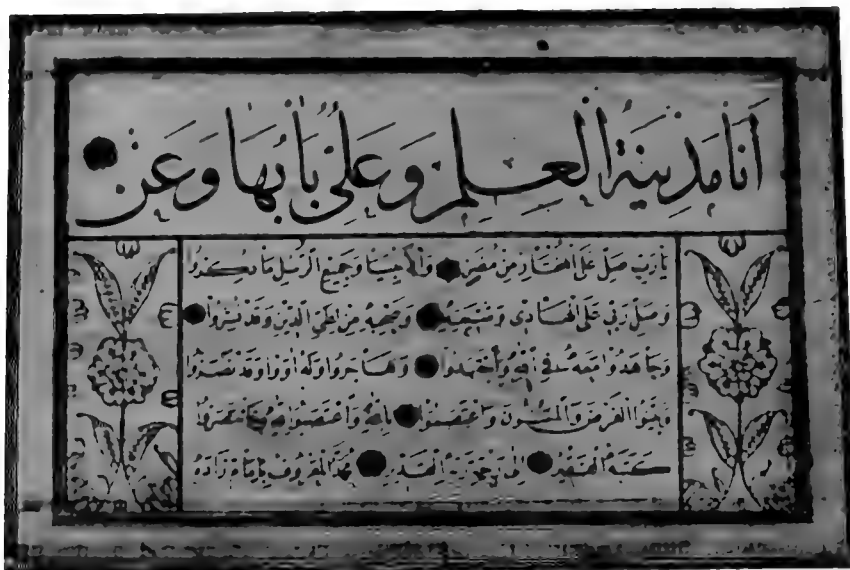 أَنَا مَدِينَةُ الْعِلْمِ وَعَلِيٌّ بَابُهَا وَعَنْ
يَا رَبِّ صَلِّ عَلَى الْمُخْتَارِ مِنْ مُضَرٍ وَالْأَنْبِيَا وَجَمِيعِ الرُّسْلِ مَا ذُكِرُوا
وَصَلِّ رَبِّي عَلَى الْهَادِي وَشِيعَتِهِ وَصَحْبِهِ مَنْ لِطَيِّ الدِّينِ قَدْ نَشَرُوا
وَجَاهَدُوا مَعَهُ فِي اللَّهِ وَاجْتَهَدُوا وَهَاجَرُوا وَلَهُ آوَوْا وَقَدْ نَصَرُوا
وَبَيَّنُوا الْفَرْضَ وَالْمَسْنُونَ وَاعْتَصَبُوا بِاللَّهِ وَاعْتَصَمُوا بِاللَّهِ فَانْتَصَرُوا
كَتَبَهُ الْحَقِيرُ إِلَى رَحْمَةِ رَبِّهِ الْقَدِيرِ مُحَمَّدُ الْمَعْرُوفُ بِإِمَامْ زَادَهْ